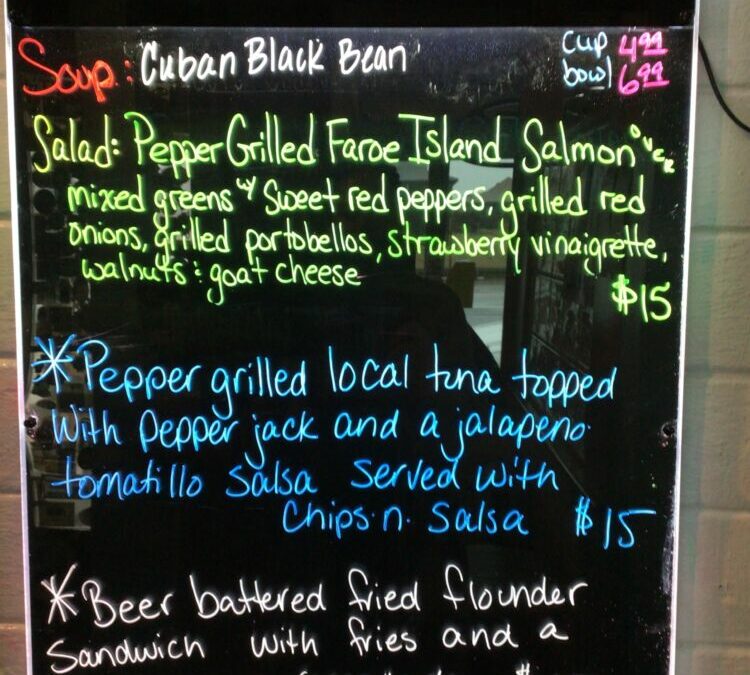 Soup: Cuban Black Bean cup 4.99
bowl 6.99
Salad: Pepper Grilled Faroe Island Salmon over
mixed greens w/ Sweet red peppers, grilled red
onions, grilled portobellos, strawberry vinaigrette,
walnuts : goat cheese
$15
*Pepper grilled local tuna topped
with pepper jack and a jalapeno
tomatillo salsa served with
Chips.n. Salsa $15
*Beer battered fried flounder
Sandwich with fries and a